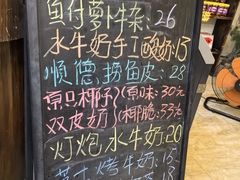 鱼付萝卜牛杂:26
水牛奶手工酸奶:15
顺德捞鱼皮:28
原只椰子(原味:30元
双皮奶(椰脆:33元
灯炮水牛奶20
烤牛奶:15